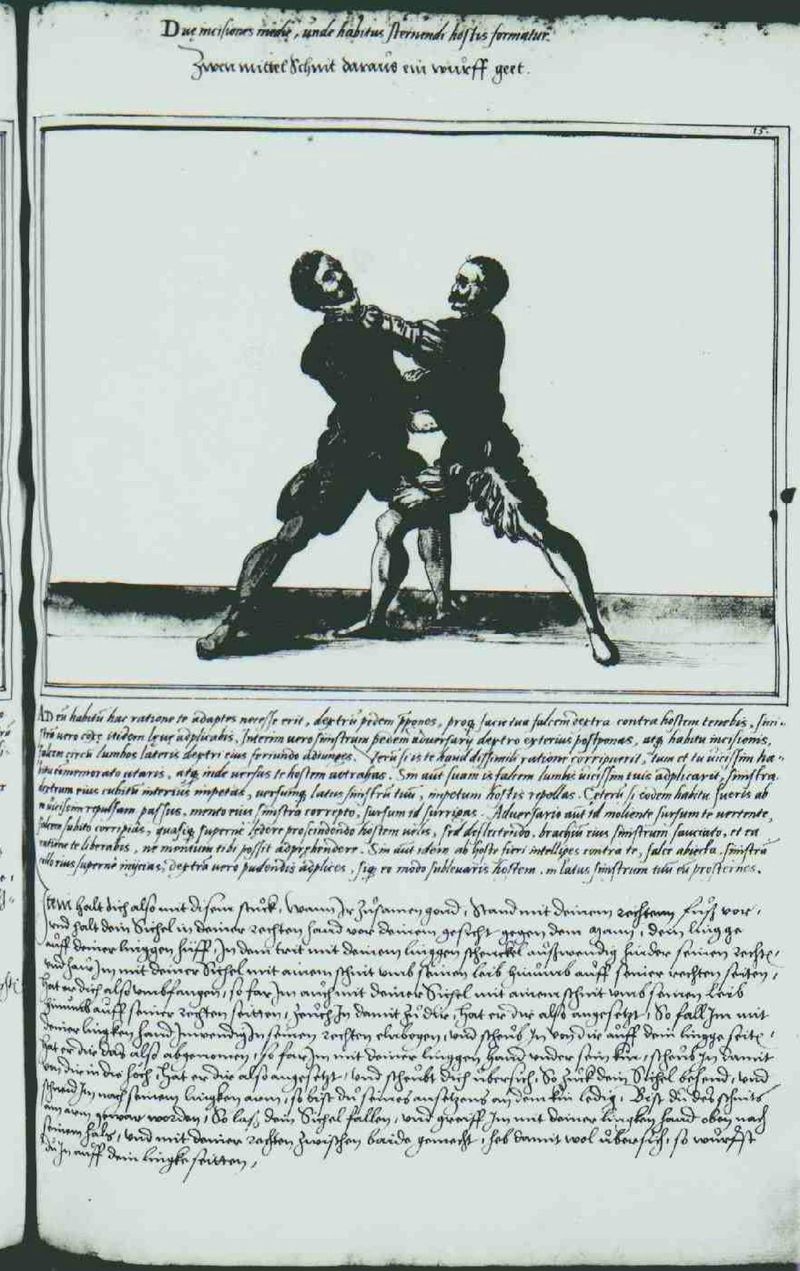 Due incisiones medie, unde habitus sternendi hostis formatur.
Zwen mittel Schnit daraus ein wurff geet.
15.
AD eu habitu hac ratione te adaptes necesse erit, dextru pedem pponas, proq facie tua falcem dextra contra hostem tenebis, sini-
stra vero coxe itidem leve applicabis. Interim vero sinistrum pedem adversarij dextro exterius postponas, atq habitu incisionis,
falcem circu lumbos lateris dextri eius feriundo adiunges. Veru si is te haud dissimili ratione corripuerit, tum et tu vicissim ha-
bitu comemorato utaris, atq inde versus te hostem attrahas. Sin aut suam is falcem lumbis vicissim tuis adplicarit, sinistra
dextrum eius cubitu interius impetas, versumq latus sinistru tuu, impetum hostis repellas. Ceteru si eodem habitu fueris ab
eo vicissim repulsam passus, mento eius sinistra correpto, sursum id surripas. Adversario aut id moliente sursum te vertente,
falcem subito corripias, quasiq superne ledere proscindendo hostem velis, sed deflectendo, brachiu eius sinistrum sauciato, et ea
ratione te liberabis, ne mentum tibi possit adprehendere. Sin aut idem ab hoste fieri intelliges contra te, falce abiecta, sinistra
collo eius superne inijcias, dextra vero pudendis adplices, sicq eo modo sublevaris hostem, in latus sinistrum tuu eu prosternes.
Item halt dich also mit disem stuck, wann Ir zusamen gond, Stand mit deinem rechtem fuss vor,
und halt dein Sichel in deiner rechten hand vor deinem gesicht gegen dem mann, dein lingge
auff deiner linggen hüff, In dem trit mit deinem linggen schenckel auswendig hinder seinen rechte,
und haw Im mit deiner Sichel mit ainem schnit umb seinen leib hinumb auff seiner rechten seitten,
hat er dich also umbfangen, so far Im auch mit deiner Sichel mit ainem schnit umb seinen leib
hinumb auff seiner rechten seitten, zeuch In damit zu dir, hat er dir also angesetzt, So fall Im mit
deiner lingken hand Inwendig In seinen rechten elnbogen, und scheub In von dir auff dein lingge seite,
hat er dir das also abgenomen, so far Im mit deiner linggen hand under sein kin, scheub In damit
von dir in die hoch, hat er dir also angesetzt, und scheubt dich ubersich, So zuck dein Sichel behend, und
schneid Im nach seinem lingken arm, so bist du seines ansetzens an dem kin ledig, Bist du des schnits
am arm gewar worden, So lass dein Sichel fallen, und greiff Im mit deiner lingken hand oben nach
seinem hals, und mit deiner rechten zwischen baide gemecht, heb damit wol ubersich, so wurffst
du In auff dein lingke seitten,